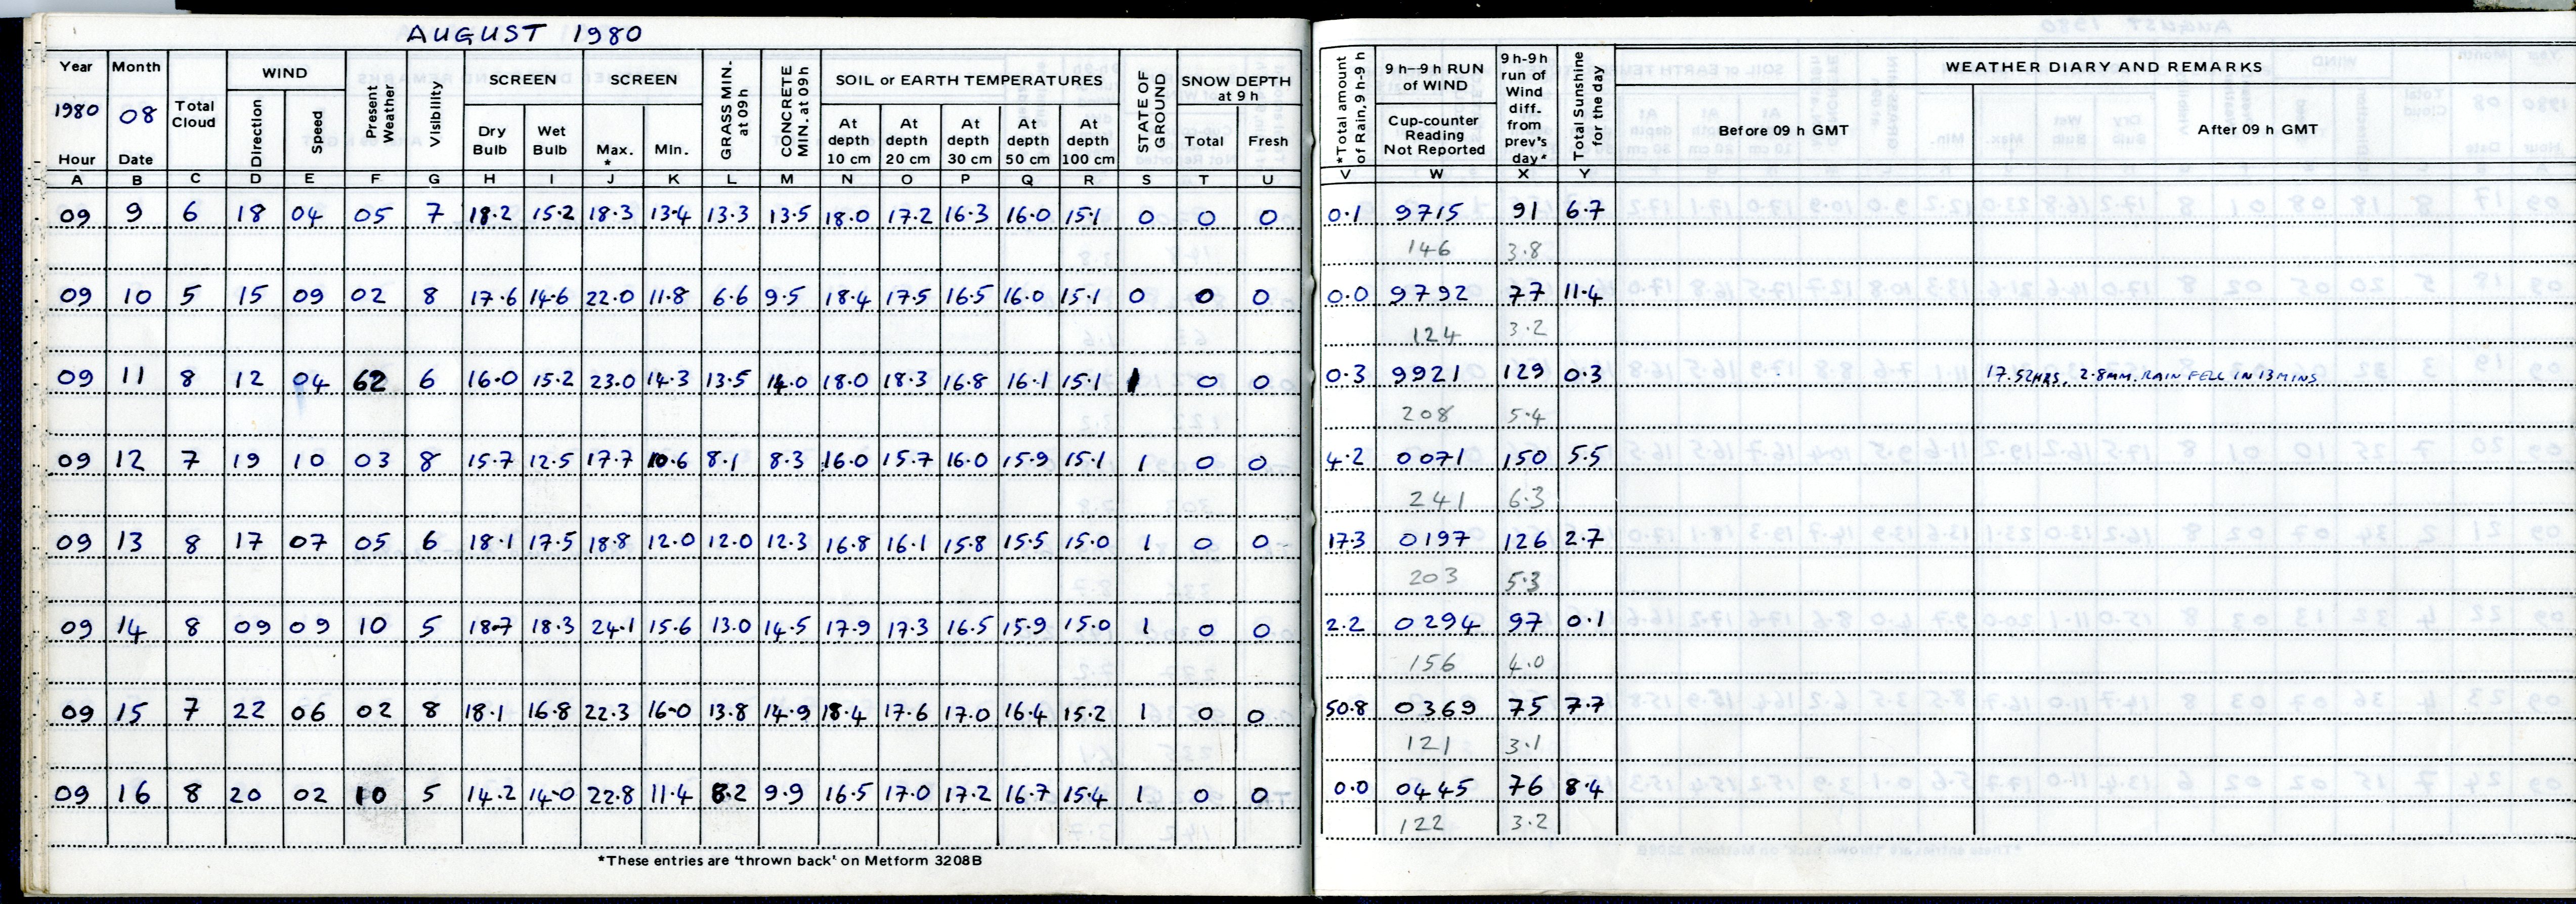 AUGUST 1980
Year Month Total Cloud WIND Present Weather Visibility SCREEN SCREEN GRASS MIN. at 09h CONCRETE MIN. at 09h SOIL or EARTH TEMPERATURES STATE OF GROUND SNOW DEPTH at 9 h *Total amount of Rain, 9h-9h 9 h--9 h RUN of WIND 9 h-9h run of Wind diff. from prev's day* Total Sunshine for the day WEATHER DIARY AND REMARKS
1980 08 Direction Speed Dry Bulb Wet Bulb Max. * Min. At depth 10 cm At depth 20 cm At depth 30 cm At depth 50 cm At depth 100 cm Total Fresh Cup-counter Reading Not Reported Before 09 h GMT After 09 h GMT
Hour Date
A B C D E F G H I J K L M N O P Q R S T U V W X Y
09 9 6 18 04 05 7 18.2 15.2 18.3 13.4 13.3 13.5 18.0 17.2 16.3 16.0 15.1 0 0 0 0.1 9715 91 6.7
146 3.8
09 10 5 15 09 02 8 17.6 14.6 22.0 11.8 6.6 9.5 18.4 17.5 16.5 16.0 15.1 0 0 0 0.0 9792 77 11.4
124 3.2
09 11 8 12 04 62 6 16.0 15.2 23.0 14.3 13.5 14.0 18.0 18.3 16.8 16.1 15.1 1 0 0 0.3 9921 129 0.3 17.52HRS, 2.8MM. RAIN FELL IN 13 MINS
208 5.4
09 12 7 19 10 03 8 15.7 12.5 17.7 10.6 8.1 8.3 16.0 15.7 16.0 15.9 15.1 1 0 0 4.2 0071 150 5.5
241 6.3
09 13 8 17 07 05 6 18.1 17.5 18.8 12.0 12.0 12.3 16.8 16.1 15.8 15.5 15.0 1 0 0 17.3 0197 126 2.7
203 5.3
09 14 8 09 09 10 5 18.7 18.3 24.1 15.6 13.0 14.5 17.9 17.3 16.5 15.9 15.0 1 0 0 2.2 0294 97 0.1
156 4.0
09 15 7 22 06 02 8 18.1 16.8 22.3 16.0 13.8 14.9 18.4 17.6 17.0 16.4 15.2 1 0 0 50.8 0369 75 7.7
121 3.1
09 16 8 20 02 10 5 14.2 14.0 22.8 11.4 8.2 9.9 16.5 17.0 17.2 16.7 15.4 1 0 0 0.0 0445 76 8.4
122 3.2
*These entries are 'thrown back' on Metform 3208B